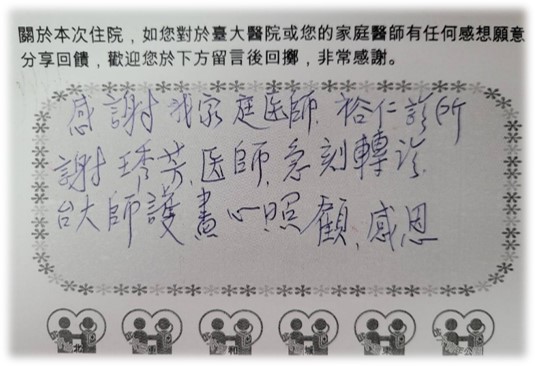 關於本次住院，如您對於臺大醫院或您的家庭醫師有任何感想願意
分享回饋，歡迎您於下方留言後回擲，非常感謝。
感謝我家庭医師.裕仁診所
謝琇芳.医師.急刻轉診.
台大師護盡心照顧,感恩
北
和
城
東
公